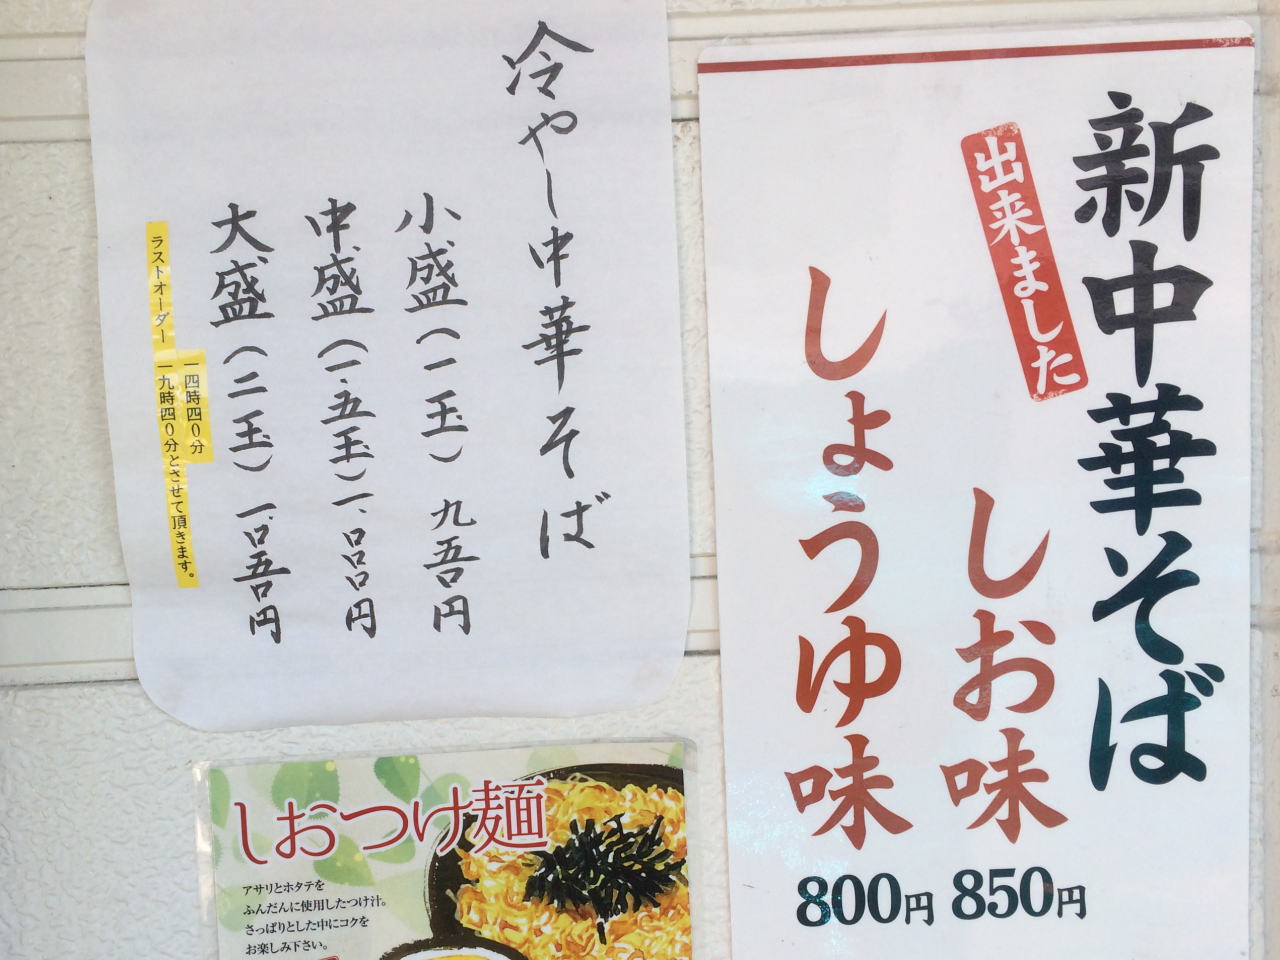 冷やし中華そば
小盛(一玉) 九五〇円
中盛(一.五玉)一、〇〇〇円
大盛(二玉) 一、〇五〇円
ラストオーダー 一四時四〇分
一九時四〇分とさせて頂きます。
新中華そば
出来ました
しお味
850円
しょうゆ味
800円
しおつけ麺
アサリとホタテを
ふんだんに使用したつけ汁。
さっぱりとした中にコクを
お楽しみ下さい。